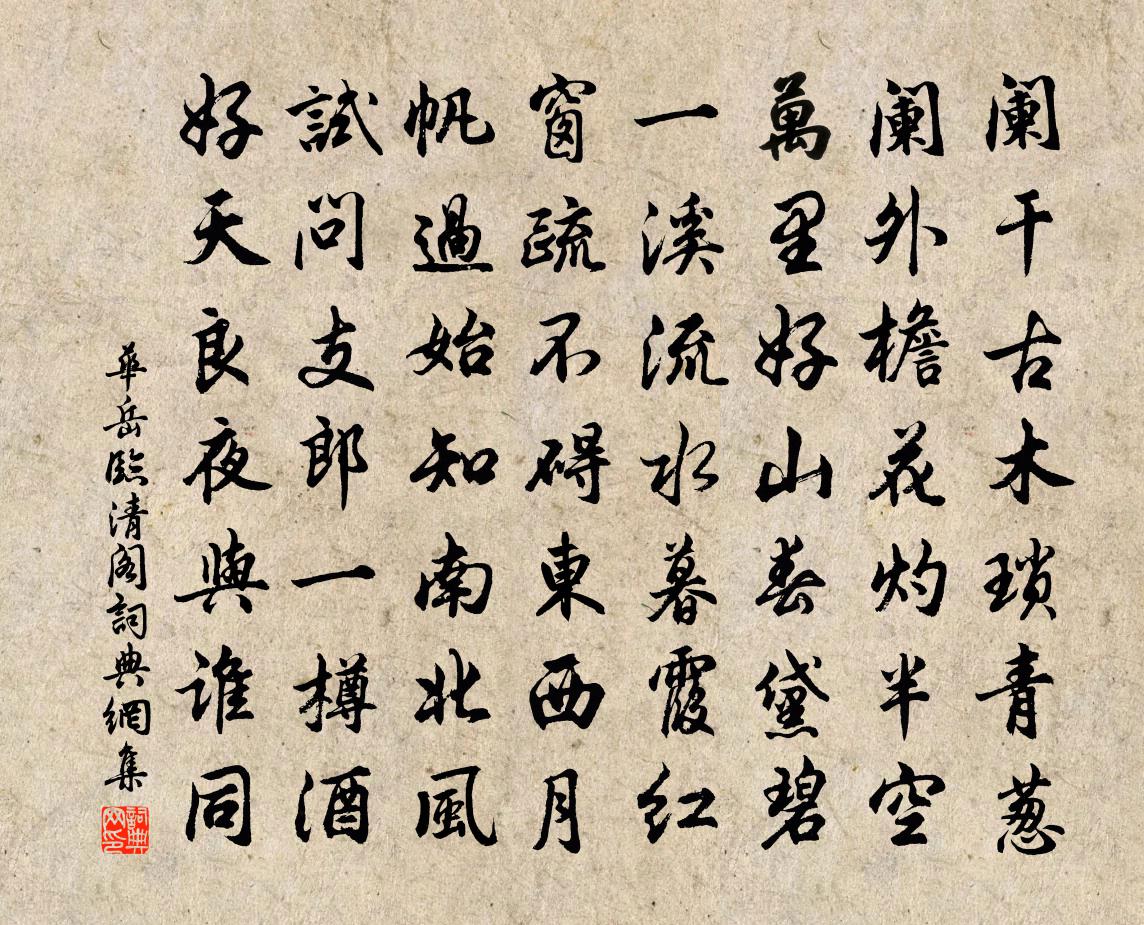 阑干古木瑣青葱
阑外檐花灼半空
萬里好山春黛碧
一溪流水暮霞紅
窗疏不碍東西月
帆過始知南北風
試問支郎一樽酒
好天良夜與誰同
華岳臨清閣詞典網集
詞典網印